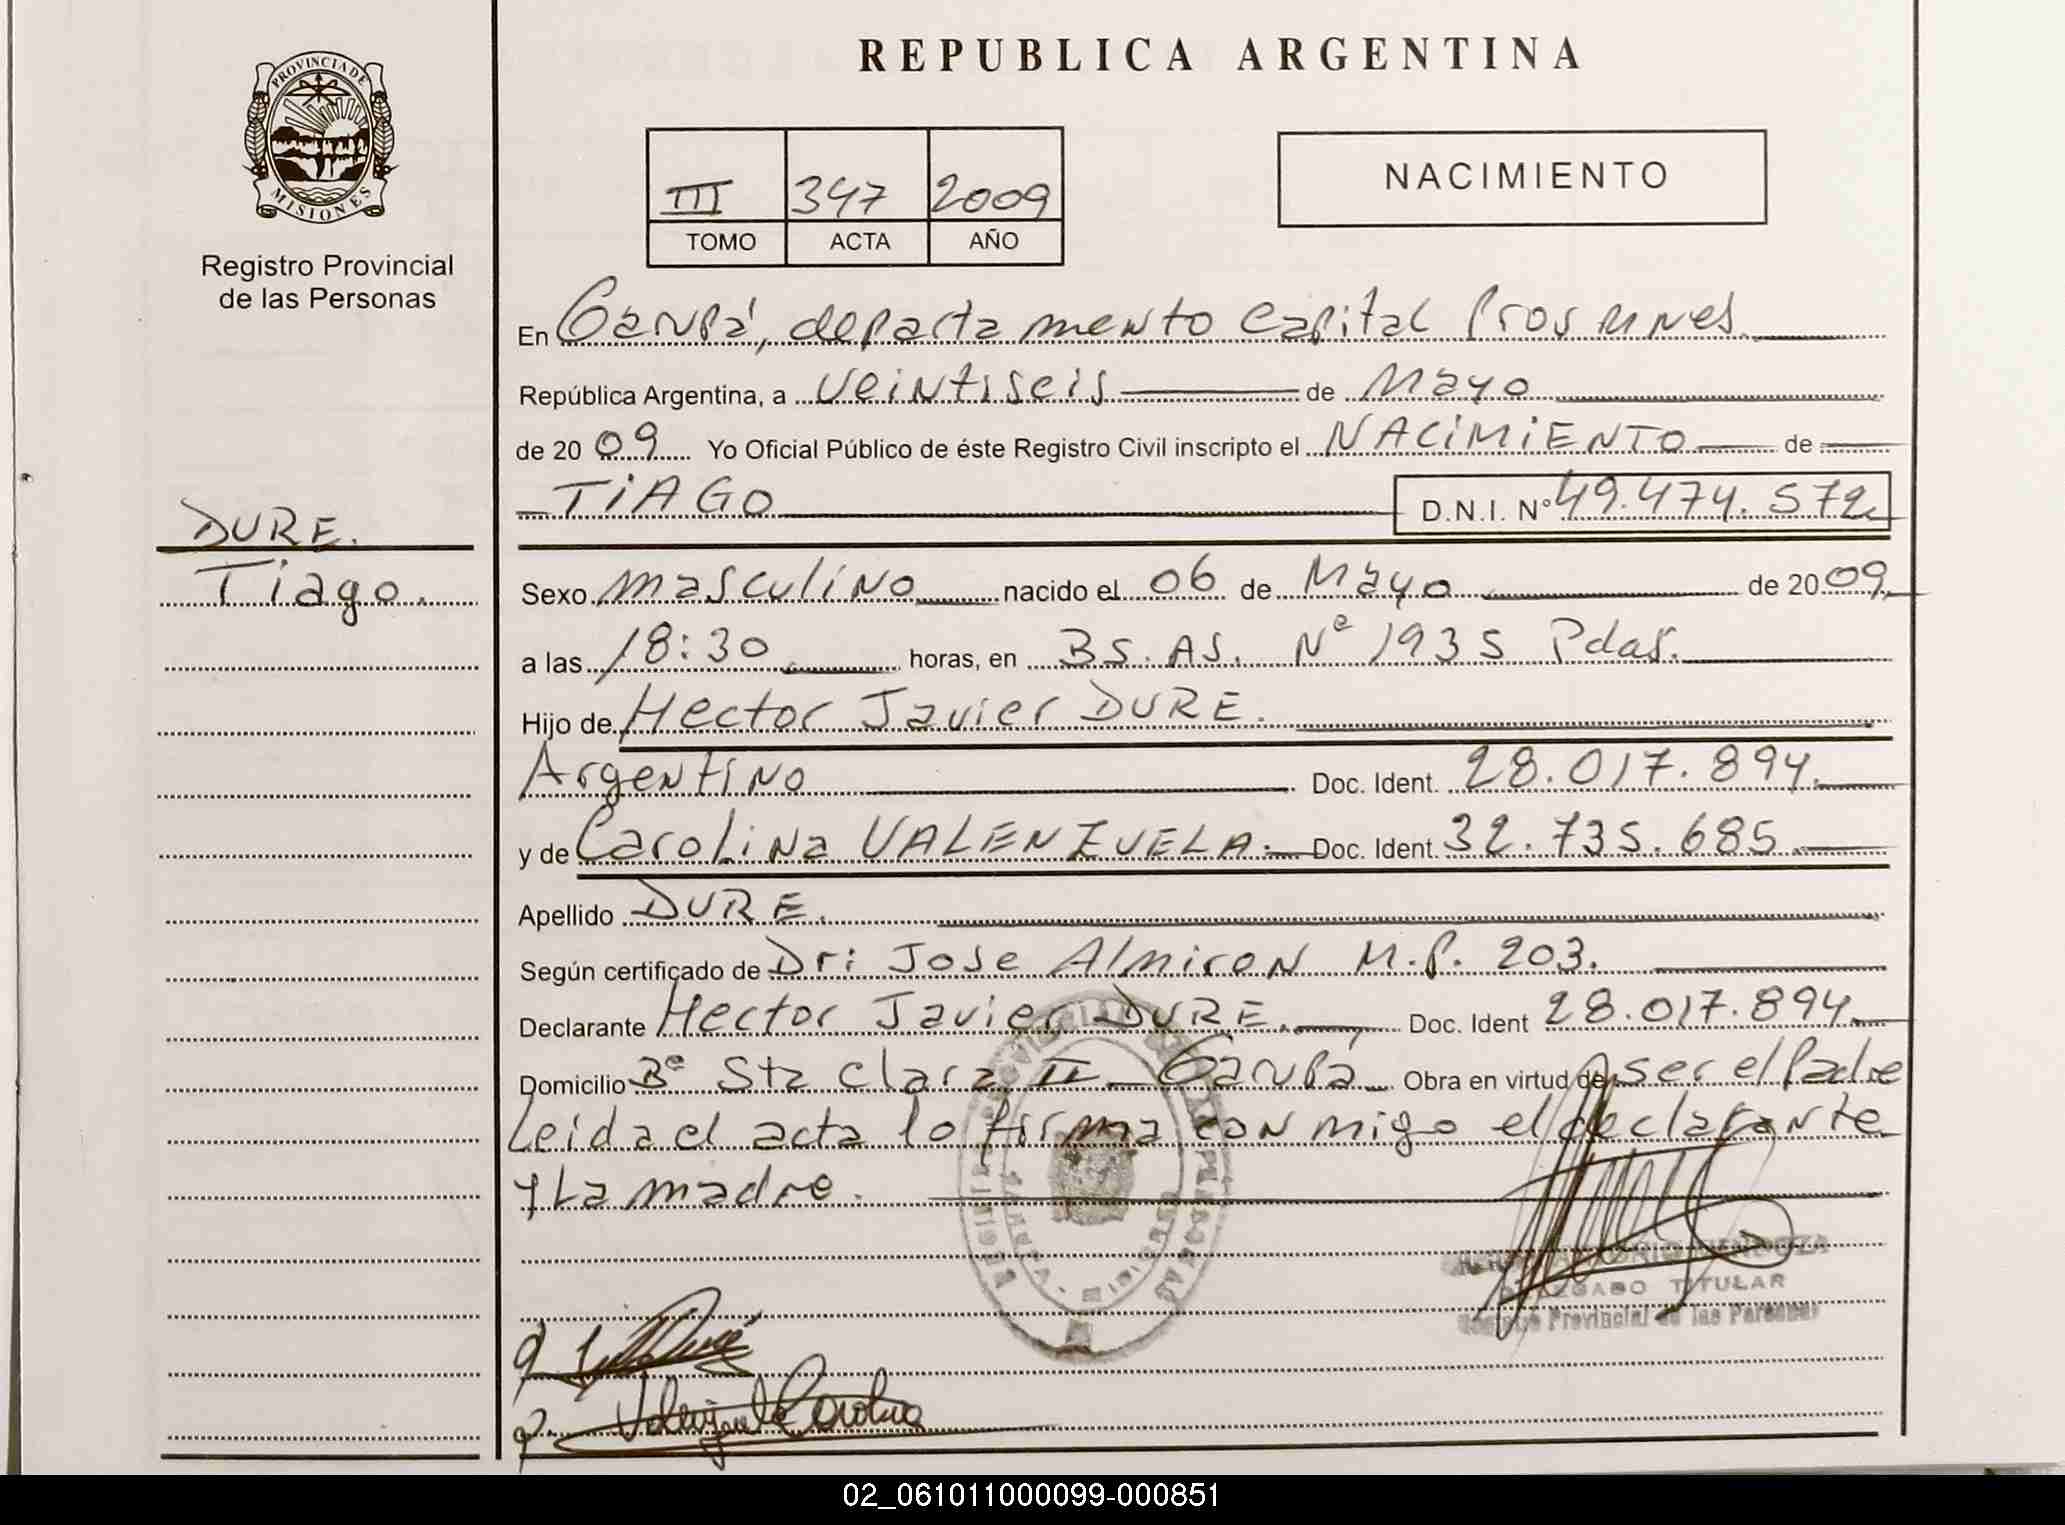 PROVINCIA DE
MISIONES
Registro Provincial
de las Personas
DURE.
Tiago.
REPUBLICA ARGENTINA
III 347 2009
TOMO ACTA AÑO
NACIMIENTO
En Garupá, departamento Capital Pros mnes.
República Argentina, a veintiseis de Mayo
de 2009 Yo Oficial Público de éste Registro Civil inscripto el NACIMIENTO de
TIAGO D.N.I. Nº 49.474.572
Sexo masculino nacido el 06 de Mayo de 2009
a las 18:30 horas, en Bs. As. Nº 1935 Pdas.
Hijo de Hector Javier DURE.
Argentino Doc. Ident. 28.017.894.
y de Carolina VALENZUELA. Doc. Ident. 32.735.685.
Apellido DURE.
Según certificado de Dr: Jose Almiron M.P. 203.
Declarante Hector Javier DURE. Doc. Ident 28.017.894.
Domicilio Bº Sta clara II - Garupá Obra en virtud de ser el Padre
Leida el acta lo firma con migo el declarante
y La madre.
MENDOZA
DELEGADO TITULAR
Registro Provincial de las Personas
Valenzuela Carolina
02_061011000099-000851